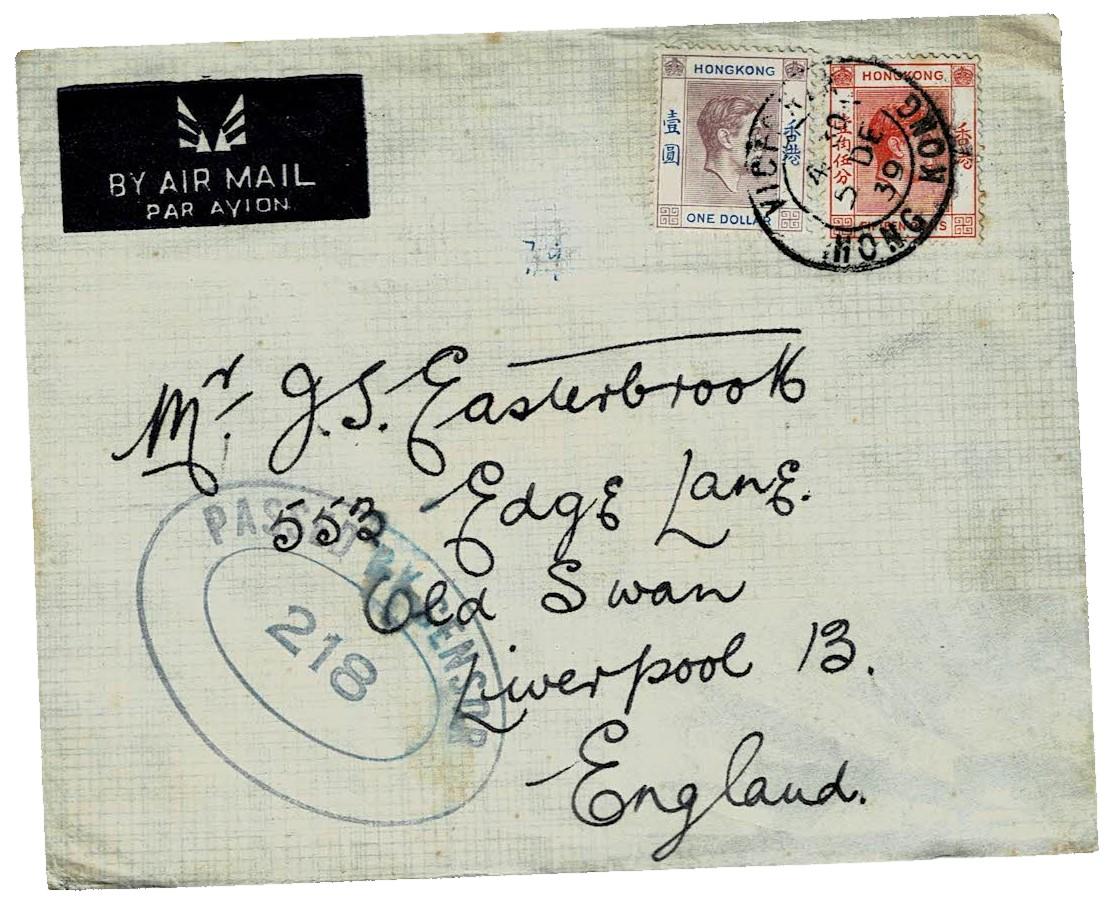 BY AIR MAIL
PAR AVION
HONGKONG
壹圓
香港
ONE DOLLAR
HONGKONG
壹角伍分
香港
VICTORIA
5 DE
39
HONG KONG
Mr. J.S. Easterbrook
553 Edge Lane.
Old Swan
Liverpool 13.
England.
PASSED BY CENSOR
218